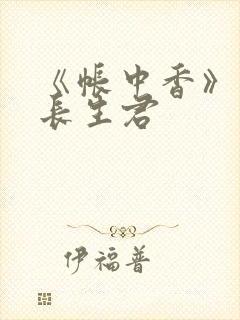 《帐中香》
长生君
伊福普